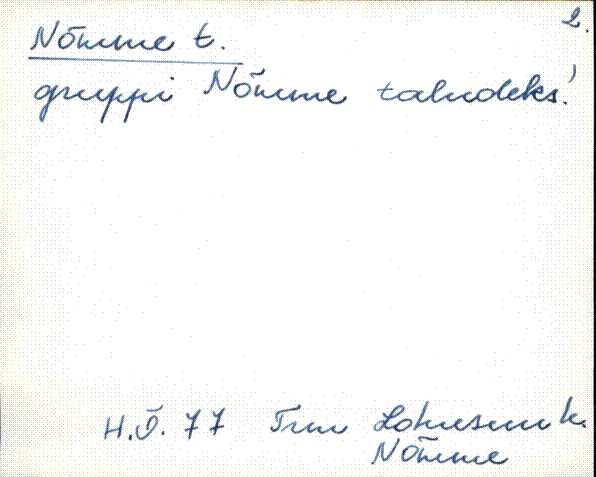 2.
Nõmme t.
gruppi Nõmme taludeks!
H.Ü. 77 Trm Lohusuu k.
Nõmme